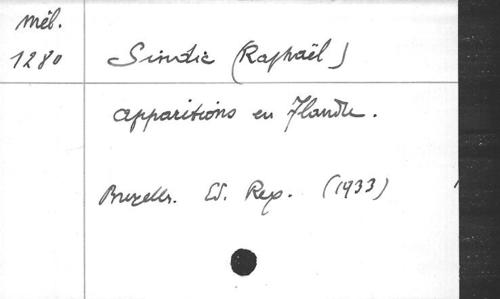 Mél.
1280
Sindic (Raphaël)
Apparitions en Flandre.
Bruxelles. Ed. Rex. (1933)